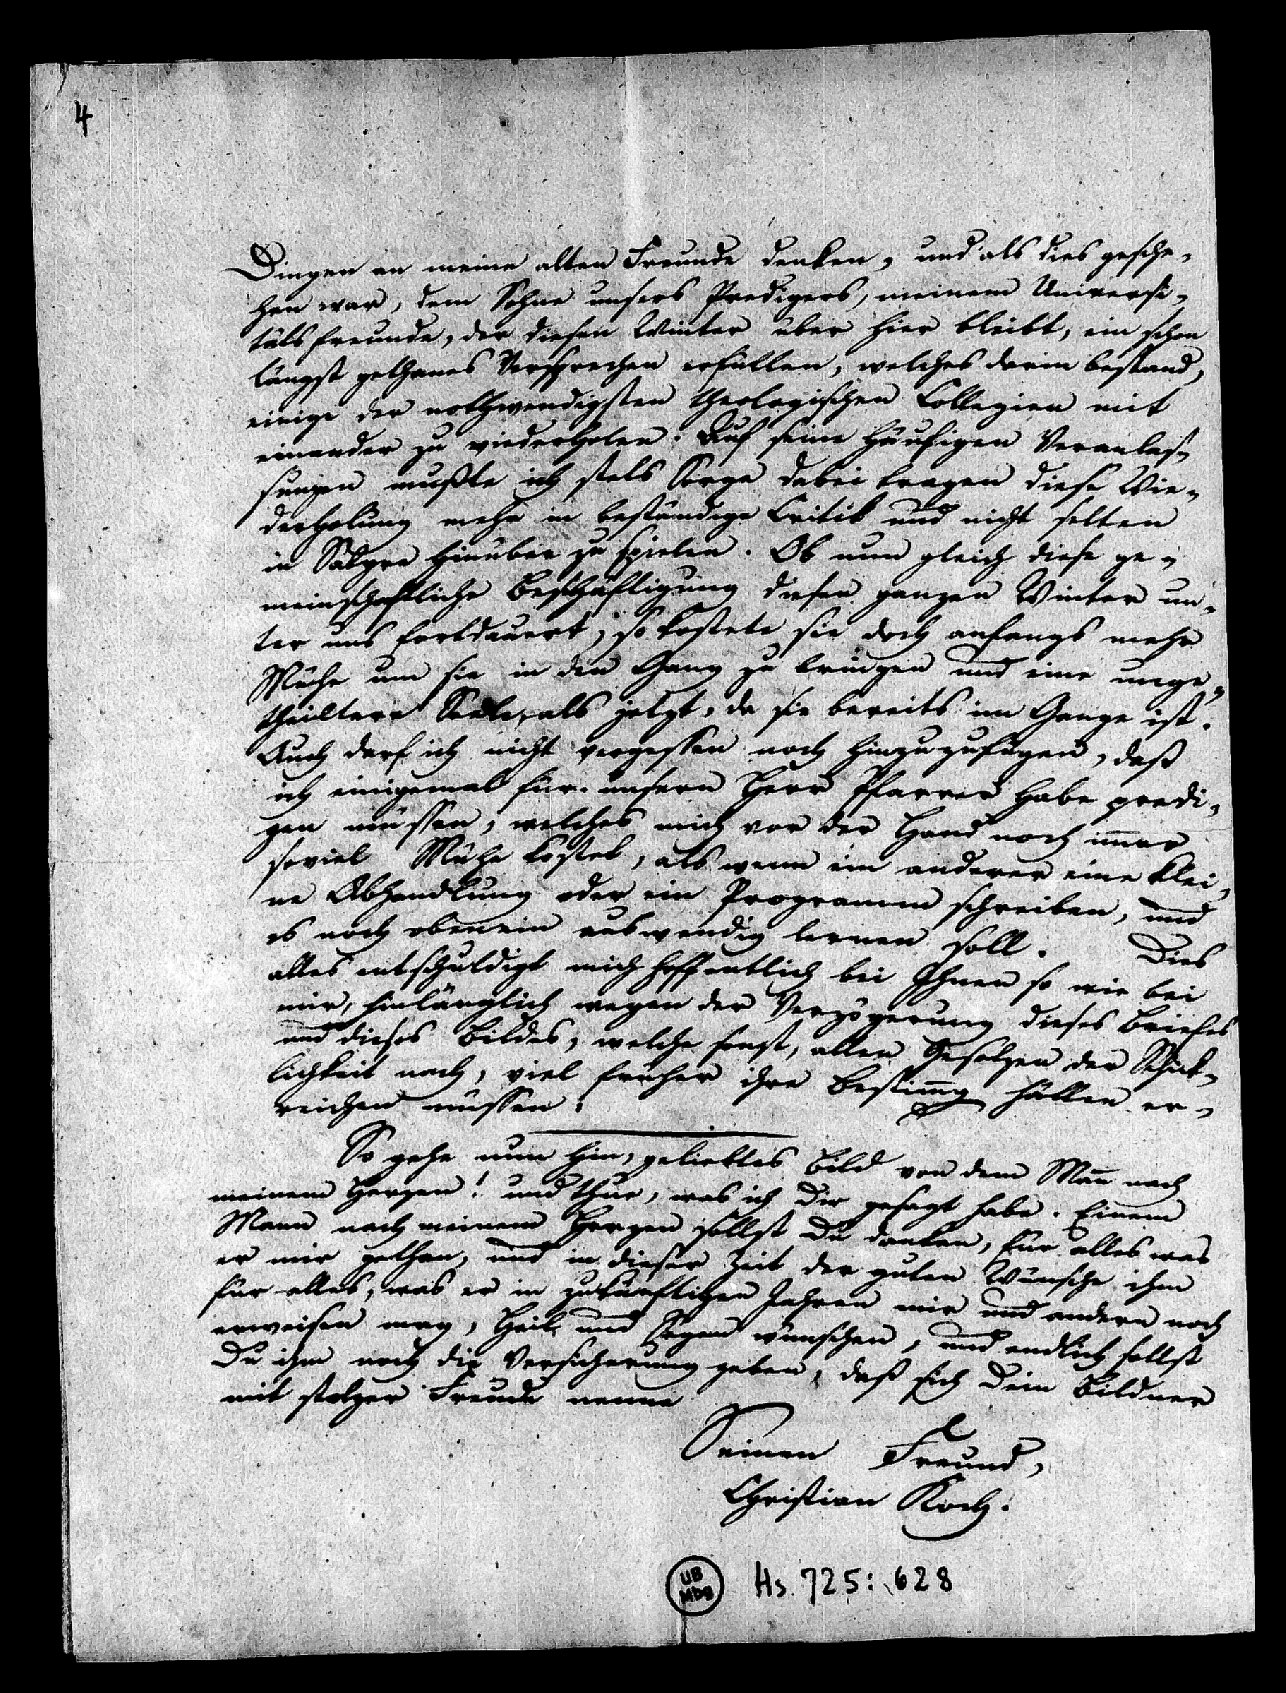 4
Dingen an meine alten Freunde denken, und als dies gesche-
hen war, dem Sohne unsers Predigers, meinem Universi-
tätsfreunde, der diesen Winter über hier bleibt, ein schon
längst gethanes Versprechen erfüllen, welches darin bestand,
einige der nothwendigsten theologischen Collegien mit
einander zu wiederholen: Auf seine häufigen Veranlas-
sungen mußte ich stets Sorge dabei tragen diese Wie-
derholung mehr in beständige Critik und nicht selten
in Satyre hinüber zu spielen. Ob nun gleich diese ge-
meinschaftliche Beschäftigung diesen ganzen Winter un-
ter uns fortdauert, so kostete sie doch anfangs mehr
Mühe um sie in den Gang zu bringen und eine unge-
theiltere Seele, als jetzt, da sie bereits im Gange ist.
Auch darf ich nicht vergessen noch hinzuzufügen, daß
ich einigemal für unsern Herrn Pfarrer habe predi-
gen müssen, welches mich vor der Hand noch immer
soviel Mühe kostet, als wenn ein anderer eine klei-
ne Abhandlung oder ein Programm schreiben, und
es noch obenein auswendig lernen soll. Dies
alles entschuldigt mich hoffentlich bei Ihnen so wie bei
mir, hinlänglich wegen der Verzögerung dieses Briefes
und dieses Bildes, welche sonst, allen Gesetzen der Schick-
lichkeit nach, viel früher ihre Bestimmg hätten er-
reichen müssen.
So gehe nun hin, geliebtes Bild von dem Mann nach
meinem Herzen! und thue, was ich Dir gesagt habe. Einem
Mann nach meinem Herzen sollst Du danken, für alles was
er mir gethan, und in dieser Zeit der guten Wünsche ihm
für alles, was er in zukünftigen Jahren mir und andern noch
erweisen mag, Heil und Segen wünschen, und endlich sollst
Du ihm noch die Versicherung geben, daß sich Dein Bildner
mit stolzer Freude nenne
Seinen Freund,
Christian Koch.
UB
Mbg
Hs. 725: 628